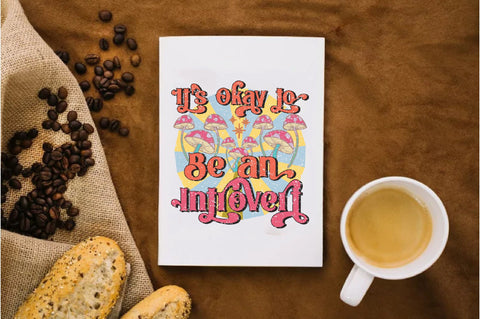 It's Okay to
Be an
Introvert